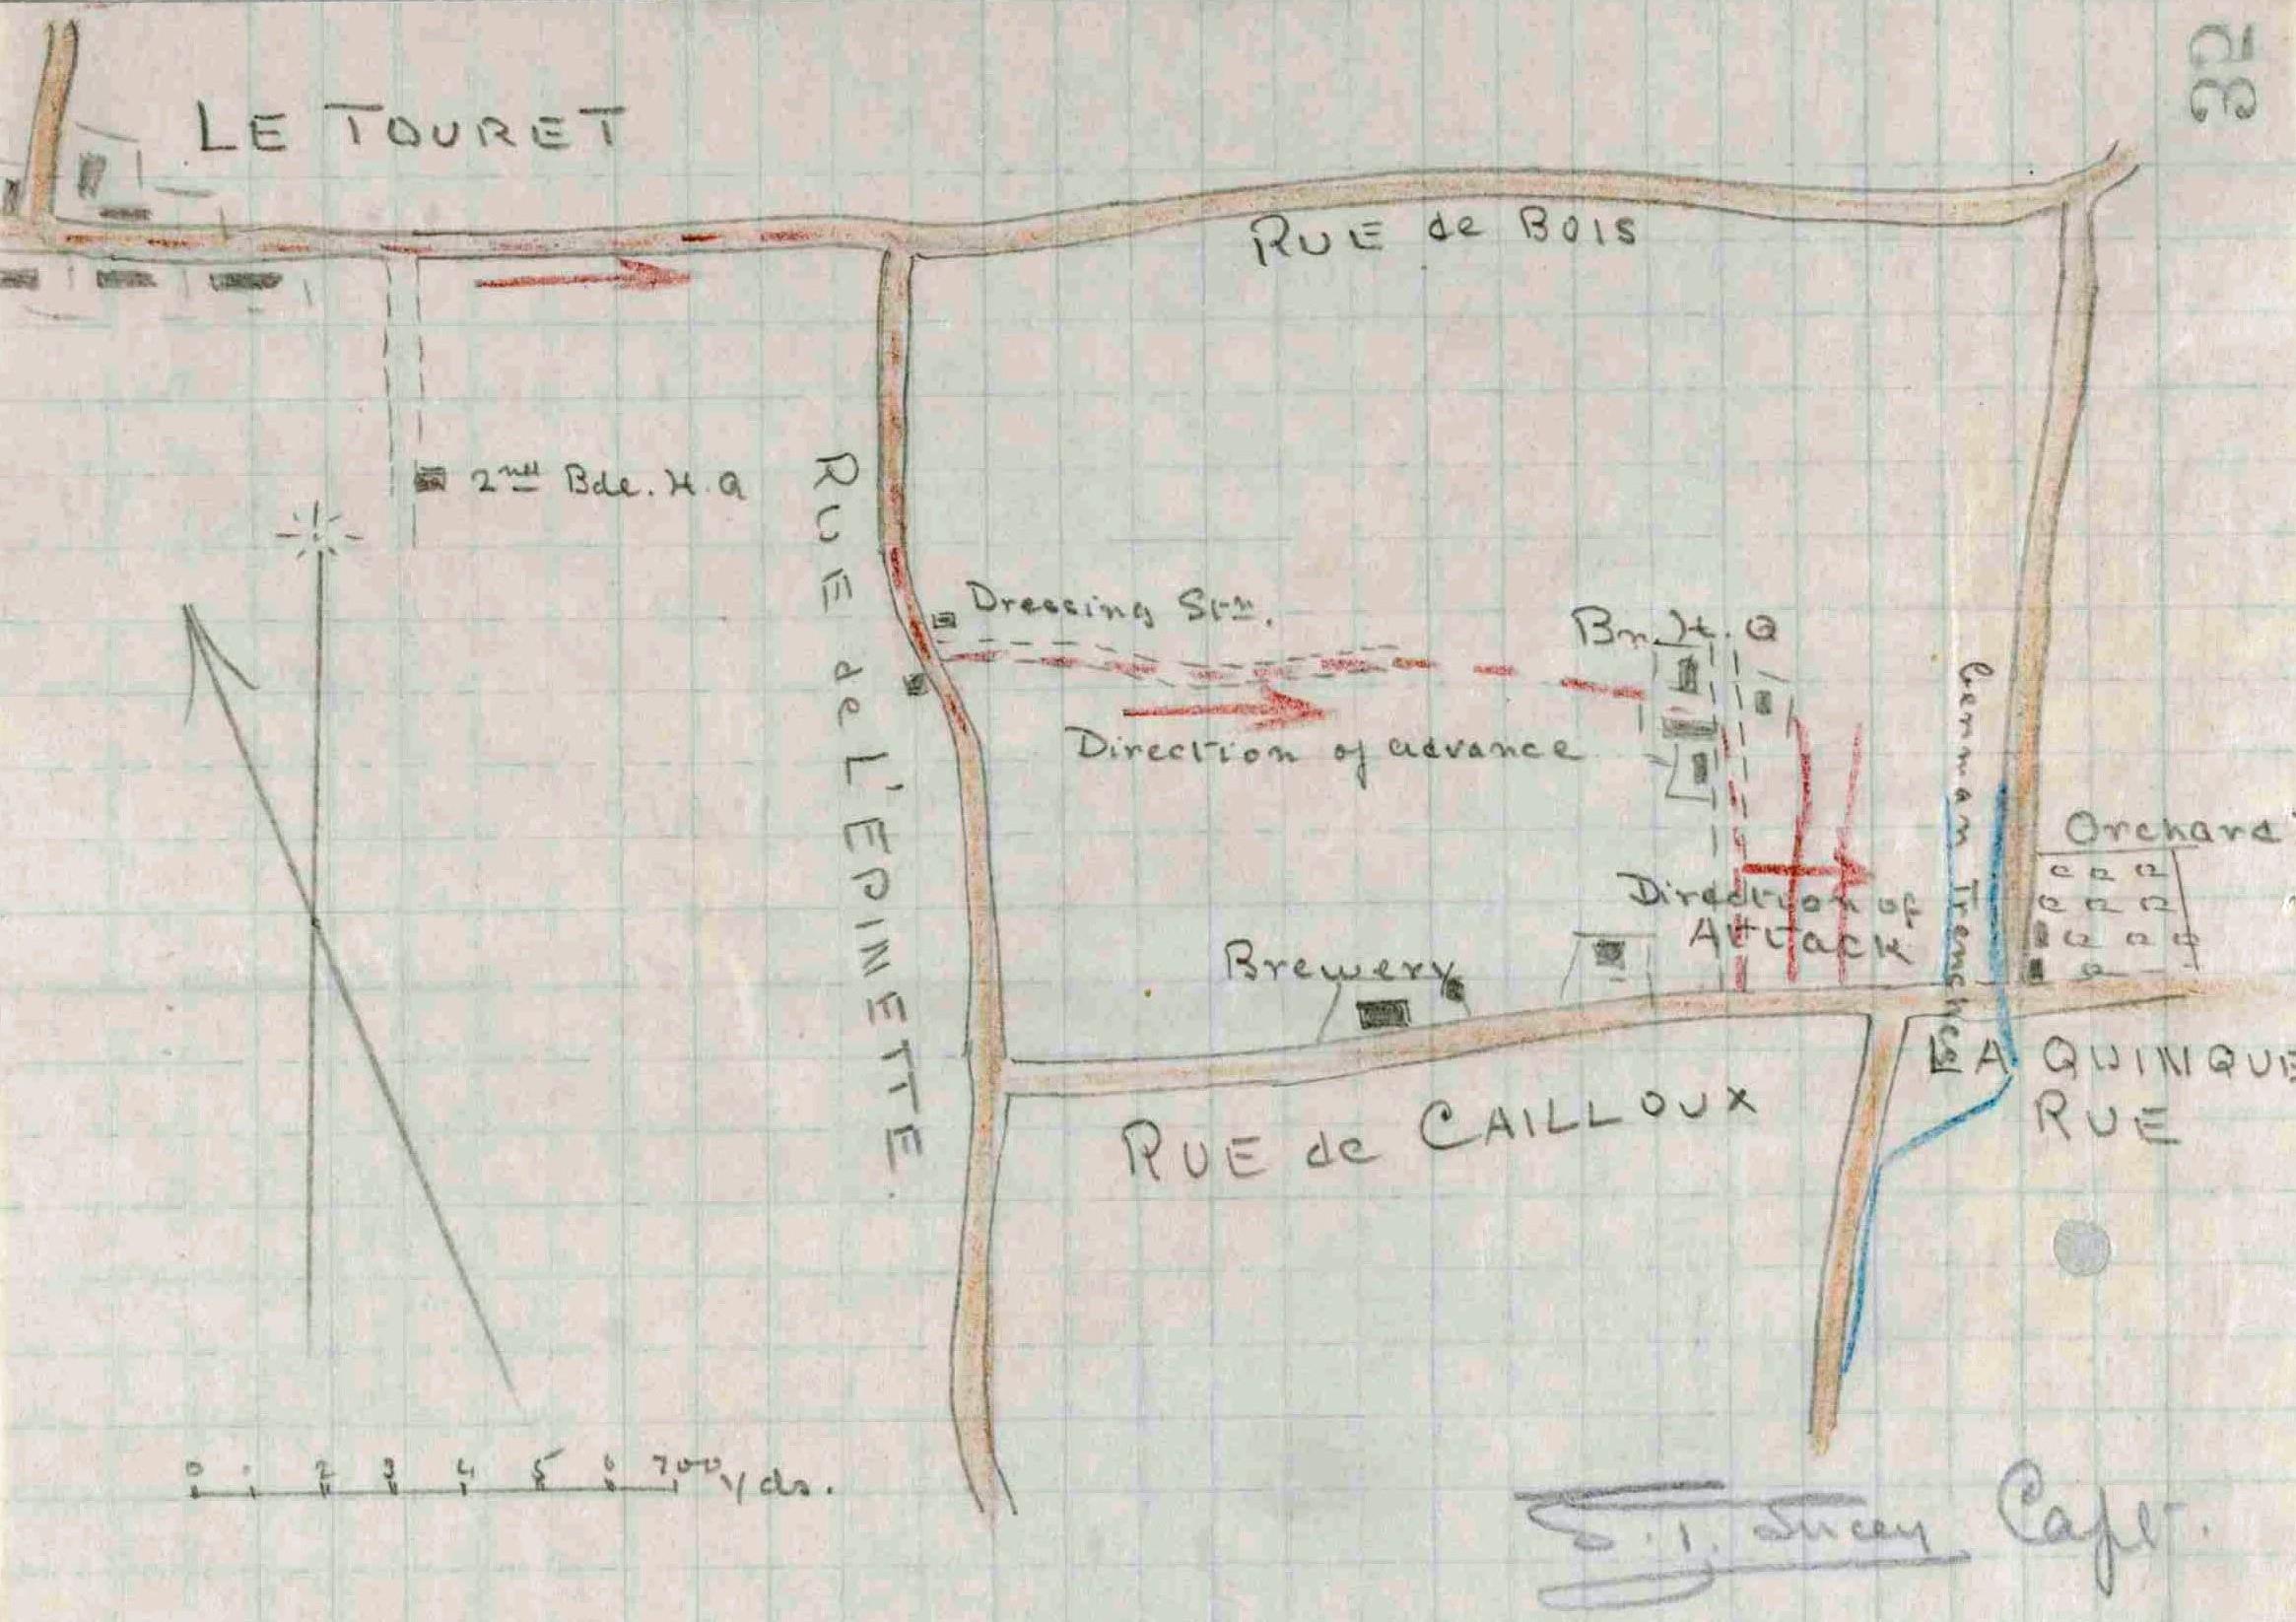 32
LE TOURET
RUE de BOIS
2nd Bde. H.Q
RUE de L'EPINETTE.
Dressing Stn.
Bn. H.Q
Direction of advance
German Trenches
Orchard
Direction of
Attack
Brewery
LA QUINQUE
RUE
RUE de CAILLOUX
0 1 2 3 4 5 6 700 yds.
Capt.